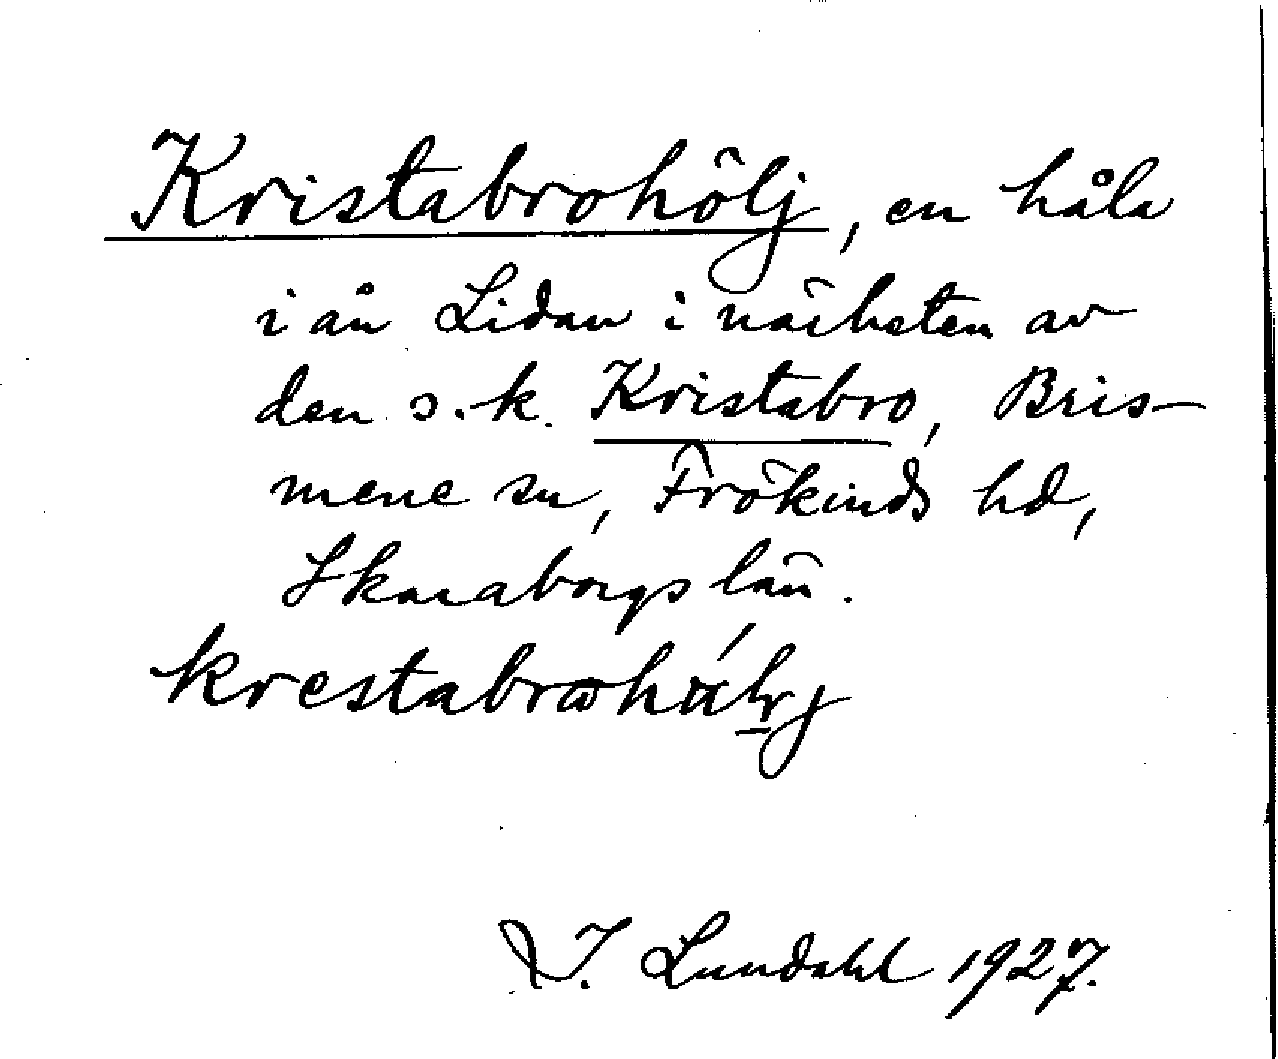 Kristabrohölj, en håla
i ån Lidan i närheten av
den s.k. Kristabro, Bris-
mene sn, Frökinds hd,
Skaraborgs län.
I. Lundahl 1927.